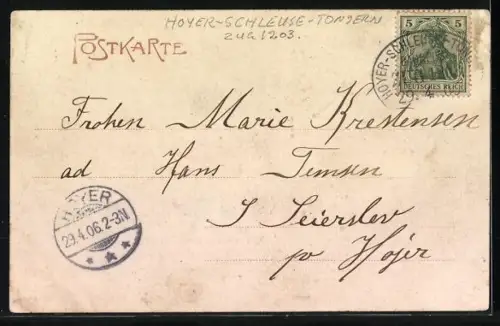 HOYER-SCHLEUSE-TONDERN
ZUG 1203.
POSTKARTE
5 5
DEUTSCHES REICH
HOYER-SCHLEUSE
29 4
Frøken Marie Krestensen
ad Hans Timsen
I Seierslev
pr Højer
HOYER
29.4.06.2-3N.